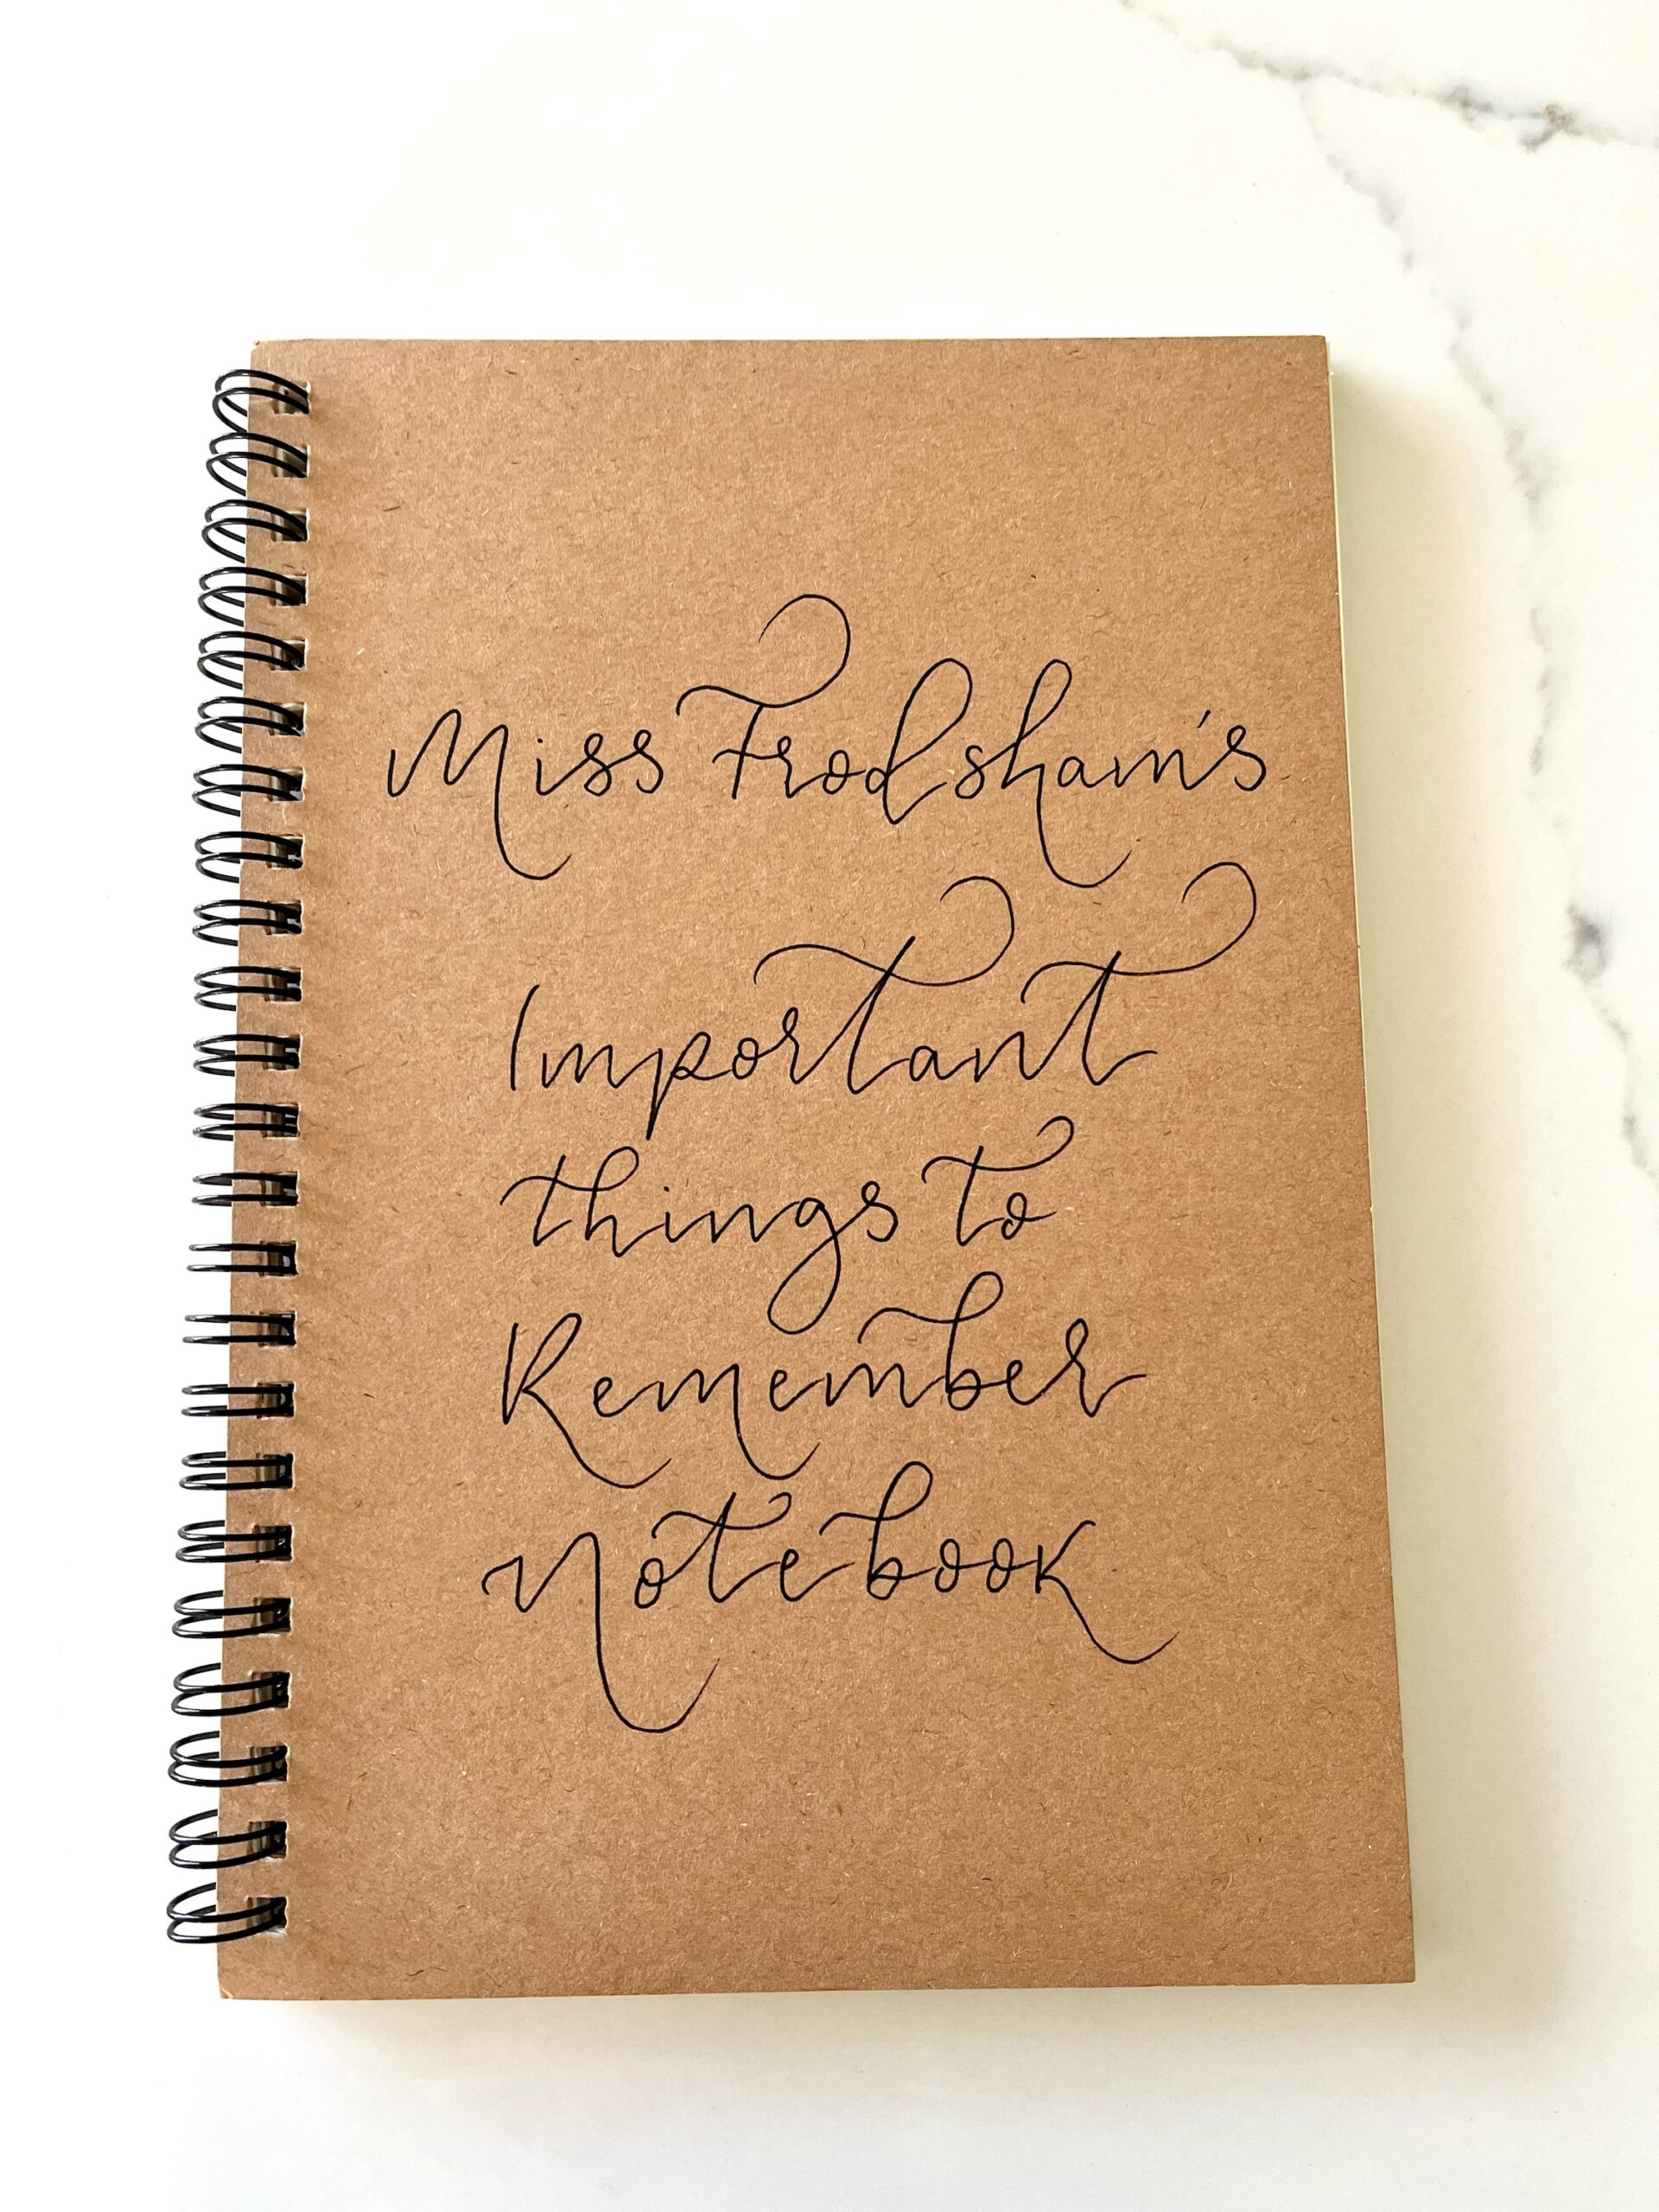 Miss Frodsham's
Important
things to
Remember
Notebook